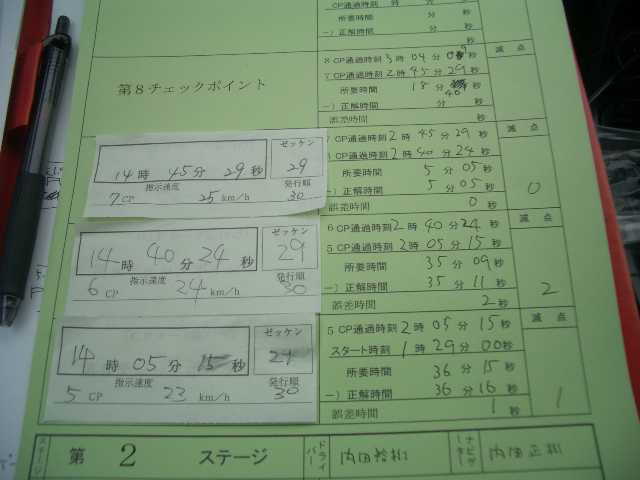 CP通過時刻 時 分 秒
所要時間 分 秒
−）正解時間 分 秒
秒
減点
第8チェックポイント
8 CP通過時刻 3時 04分 09秒
7 CP通過時刻 2時 45分 29秒
所要時間 18分 40秒
−）正解時間 分 秒
誤差時間 秒
減点
ゼッケン
14時 45分 29秒
29
指示速度
発行順
7 CP 25 km/h
30
7 CP通過時刻 2時 45分 29秒
CP通過時刻 2時 40分 24秒
所要時間 5分 05秒
−）正解時間 5分 05秒
誤差時間 0秒
0
減点
ゼッケン
14時 40分 24秒
29
指示速度
発行順
6 CP 24 km/h
30
6 CP通過時刻 2時 40分 24秒
5 CP通過時刻 2時 05分 15秒
所要時間 35分 09秒
−）正解時間 35分 11秒
誤差時間 2秒
2
減点
ゼッケン
14時 05分 15秒
29
指示速度
発行順
5 CP 23 km/h
30
5 CP通過時刻 2時 05分 15秒
スタート時刻 1時 29分 00秒
所要時間 36分 15秒
−）正解時間 36分 16秒
誤差時間 1秒
1
ステージ 第 2 ステージ ドライバー 内田 ナビゲーター 内田正